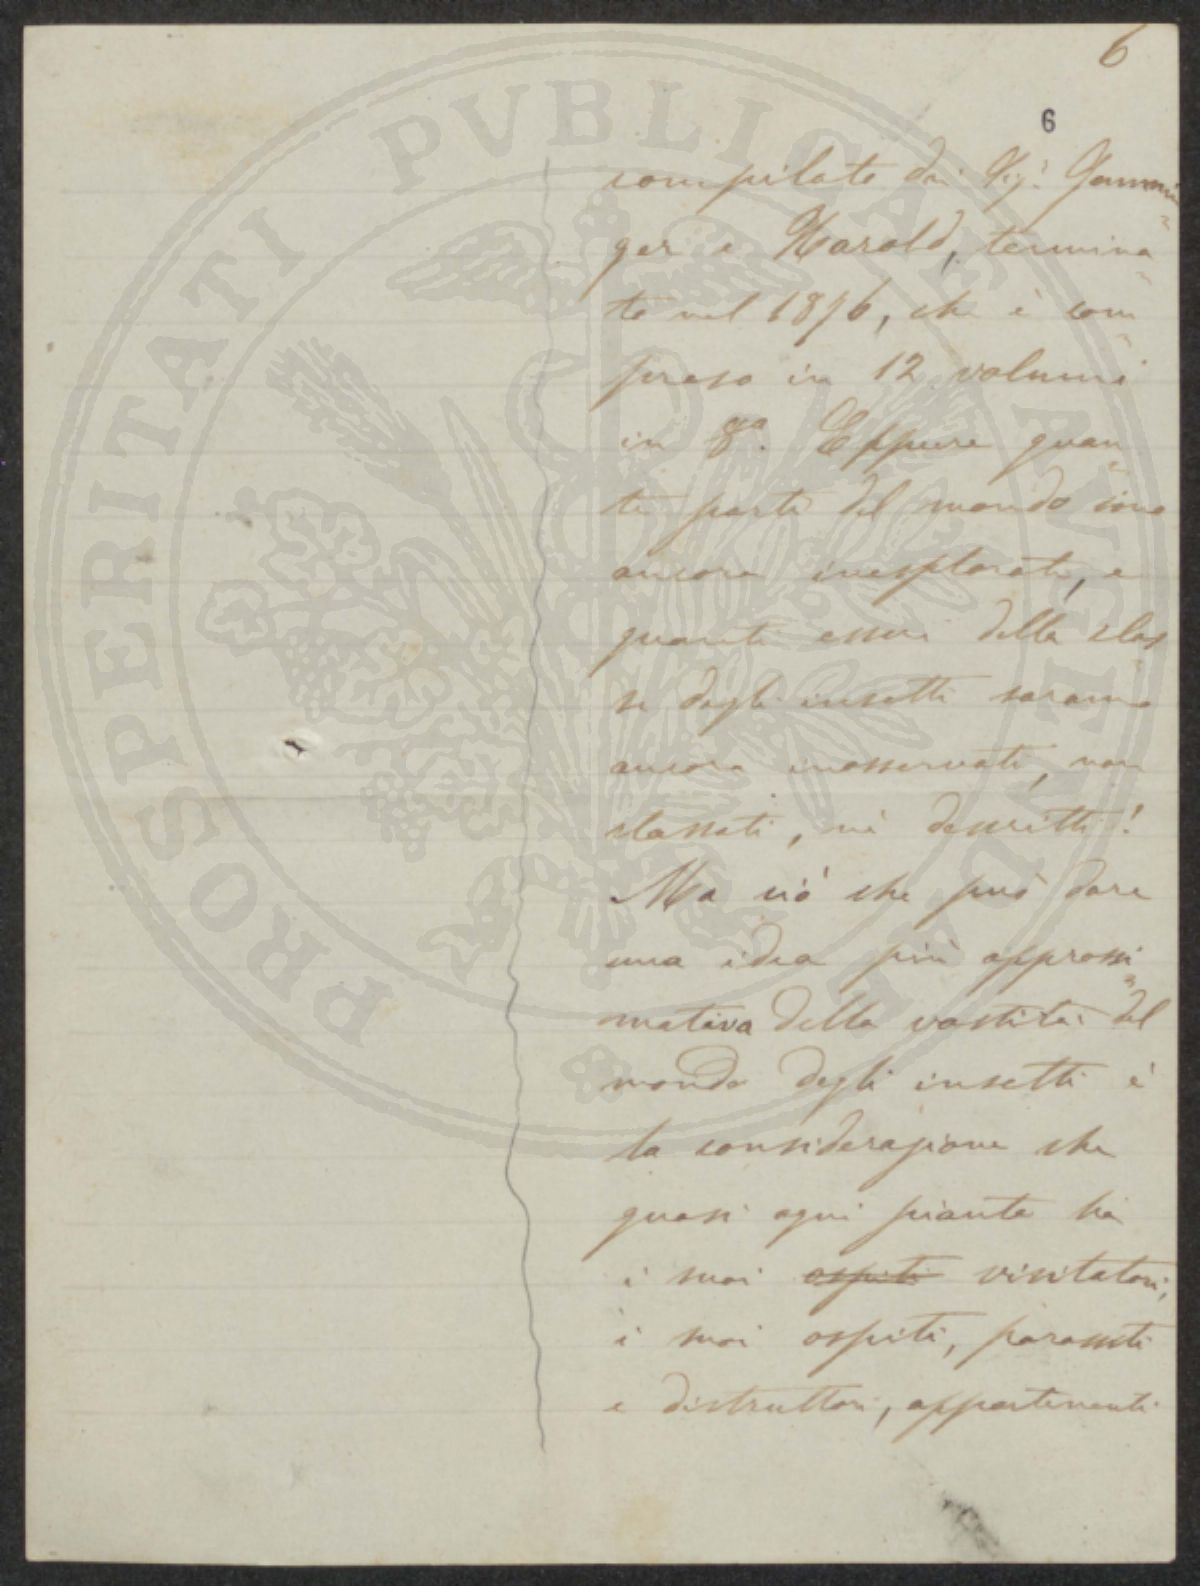 6
6
compilato dai Sig.i Gemmin
ger e Harold, termina
to nel 1876, che è com
preso in 12 volumi
in 8°. Eppure quan
te parti del mondo sono
ancora inesplorate, e
quanti esseri della clas
se degli insetti saranno
ancora inosservati, non
classati, nè descritti!
Ma ciò che può dare
una idea più approssi
mativa della vastità del
mondo degli insetti è
la considerazione che
quasi ogni pianta ha
i suoi ospiti visitatori,
i suoi ospiti, parassiti
e distruttori, appartenenti
PROSPERITATI PVBLICAE AVGENDAE